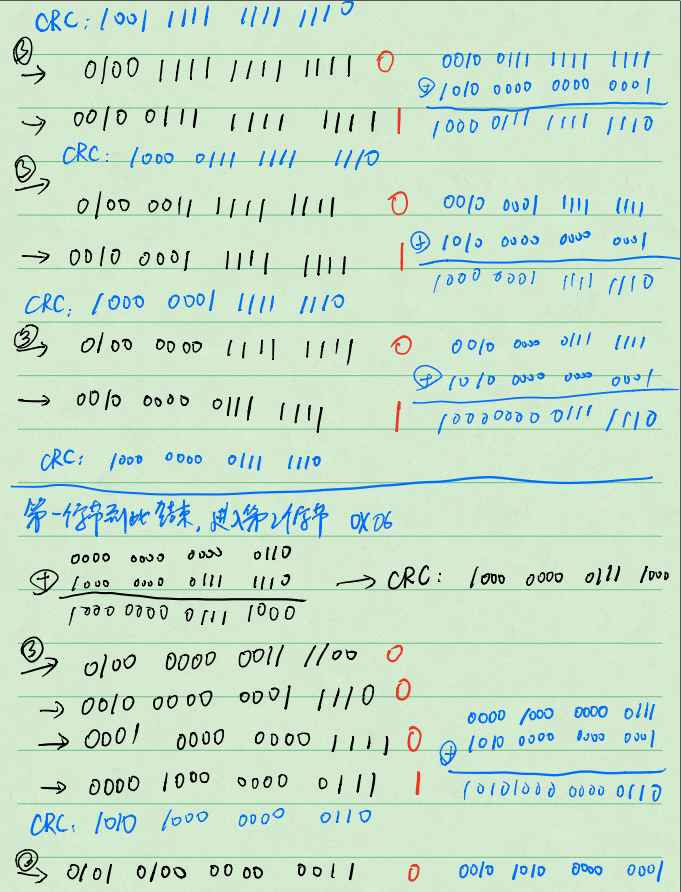 CRC: 1001 1111 1111 1110
③ → 0100 1111 1111 1111 0 0010 0111 1111 1111
⊕ 1010 0000 0000 0001
→ 0010 0111 1111 1111 1 1000 0111 1111 1110
CRC: 1000 0111 1111 1110
③ → 0100 0011 1111 1111 0 0010 0001 1111 1111
→ 0010 0001 1111 1111 1 ⊕ 1010 0000 0000 0001
1000 0001 1111 1110
CRC: 1000 0001 1111 1110
③ → 0100 0000 1111 1111 0 0010 0000 0111 1111
⊕ 1010 0000 0000 0001
→ 0010 0000 0111 1111 1 1000 0000 0111 1110
CRC: 1000 0000 0111 1110
第一个字节到此结束, 进入第2个字节 0X06
0000 0000 0000 0110
⊕ 1000 0000 0111 1110 → CRC: 1000 0000 0111 1000
1000 0000 0111 1000
③ → 0100 0000 0011 1100 0
→ 0010 0000 0001 1110 0
0000 1000 0000 0111
→ 0001 0000 0000 1111 0 ⊕ 1010 0000 0000 0001
→ 0000 1000 0000 0111 1 1010 1000 0000 0110
CRC: 1010 1000 0000 0110
→ 0101 0100 0000 0011 0 0010 1010 0000 0001